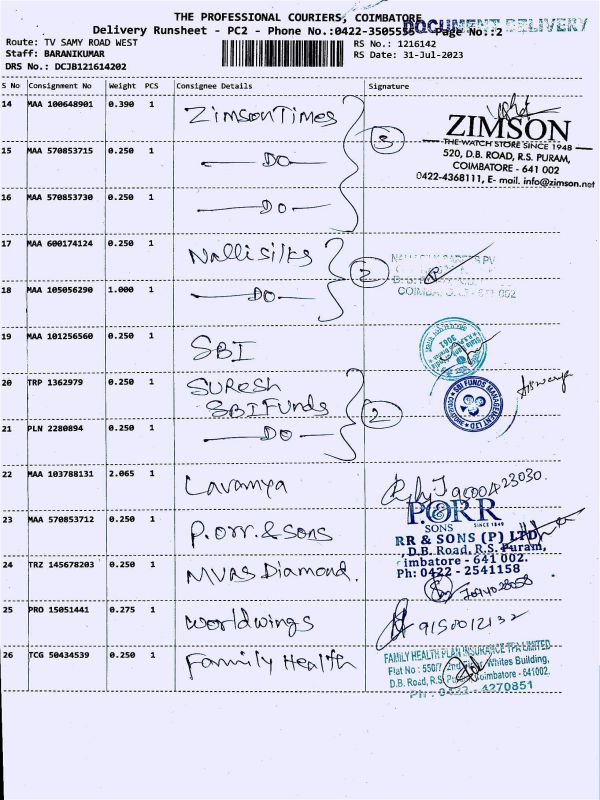 THE PROFESSIONAL COURIERS, COIMBATORE
DOCUMENT DELIVERY
Delivery Runsheet - PC2 - Phone No.:0422-3505555 Page No.:2
Route: TV SAMY ROAD WEST
RS No.: 1216142
Staff: BARANIKUMAR
RS Date: 31-Jul-2023
DRS No.: DCJB121614202
S No Consignment No Weight PCS Consignee Details Signature
14 MAA 100648901 0.390 1 Zimson Times
3
ZIMSON
THE WATCH STORE SINCE 1948
520, D.B. ROAD, R.S. PURAM,
COIMBATORE - 641 002
0422-4368111, E- mail. info@zimson.net
15 MAA 570853715 0.250 1 DO
16 MAA 570853730 0.250 1 DO
17 MAA 600174124 0.250 1 Nalli silks
2
18 MAA 105056290 1.000 1 DO
19 MAA 101256560 0.250 1 SBI
20 TRP 1362979 0.250 1 SURESH
SBI Funds
2
SBI FUNDS MANAGEMENT LTD
21 PLN 2280894 0.250 1 DO
22 MAA 103788131 2.065 1 Lavamya
23 MAA 570853712 0.250 1 P.orr. & sons
P.ORR
& SONS
SINCE 1849
RR & SONS (P) LTD
D.B. Road, R.S. Puram,
imbatore - 641 002.
Ph: 0422 - 2541158
24 TRZ 145678203 0.250 1 MVAS Diamond.
25 PRO 15051441 0.275 1 worldwings
9150012132
26 TCG 50434539 0.250 1 Family Health
FAMILY HEALTH PLAN INSURANCE TPA LIMITED
Flat No : 550/7 2nd Floor Whites Building,
D.B. Road, R.S. Puram Coimbatore - 641002.
PH : 0422 - 4270851